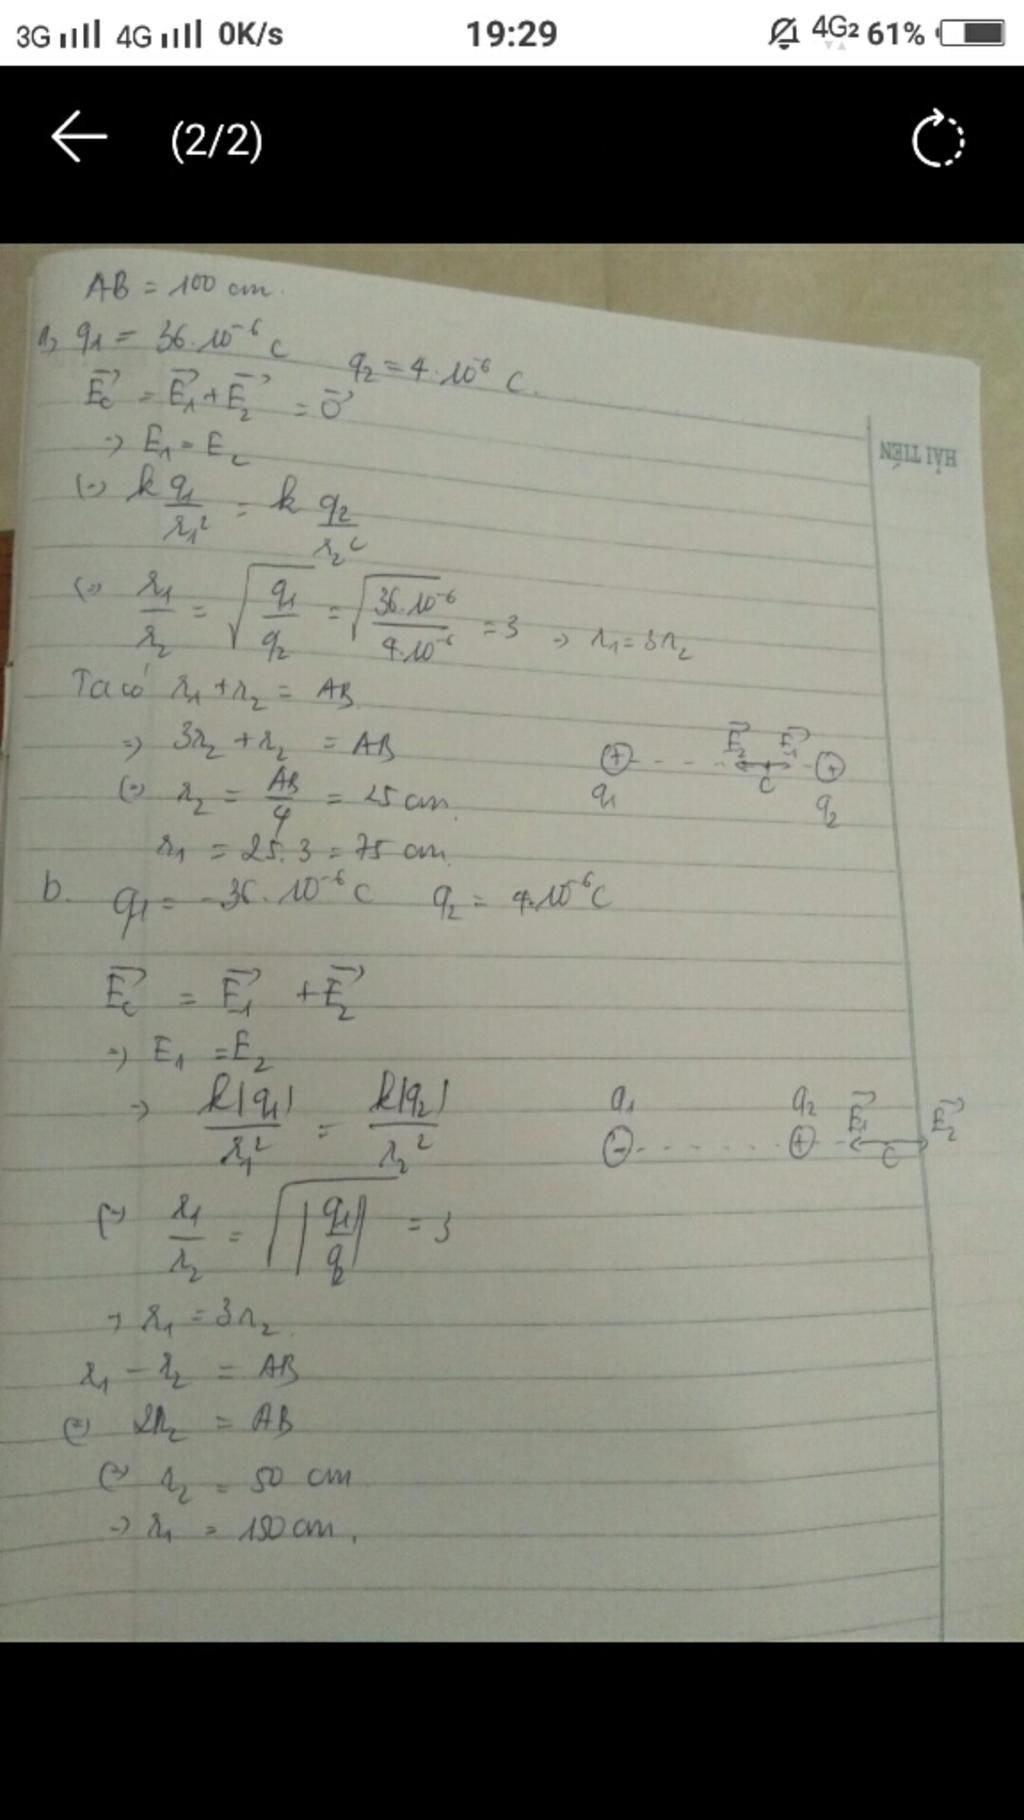 3G 4G 0K/s 19:29 4G2 61%
(2/2)
AB = 100 cm.
a, q1 = 36.10⁻⁶ C q2 = 4.10⁻⁶ C.
E⃗c = E⃗1 + E⃗2 = 0⃗
=> E1 = E2
(=) k q1/r1² = k q2/r2²
(=) r1/r2 = √(q1/q2) = √(36.10⁻⁶/4.10⁻⁶) = 3 => r1 = 3r2
HẢI TIẾN
Ta có r1 + r2 = AB
=> 3r2 + r2 = AB
(=) r2 = AB/4 = 25 cm.
r1 = 25.3 = 75 cm.
+ E⃗2 E⃗1 +
q1 C q2
b. q1 = -36.10⁻⁶ C q2 = 4.10⁻⁶ C
E⃗c = E⃗1 + E⃗2
=> E1 = E2
-> k|q1|/r1² = k|q2|/r2²
q1 q2 E⃗1 E⃗2
- + C
(=) r1/r2 = √|q1/q2| = 3
-> r1 = 3r2.
r1 - r2 = AB
(=) 2r2 = AB
(=) r2 = 50 cm
-> r1 = 150 cm.